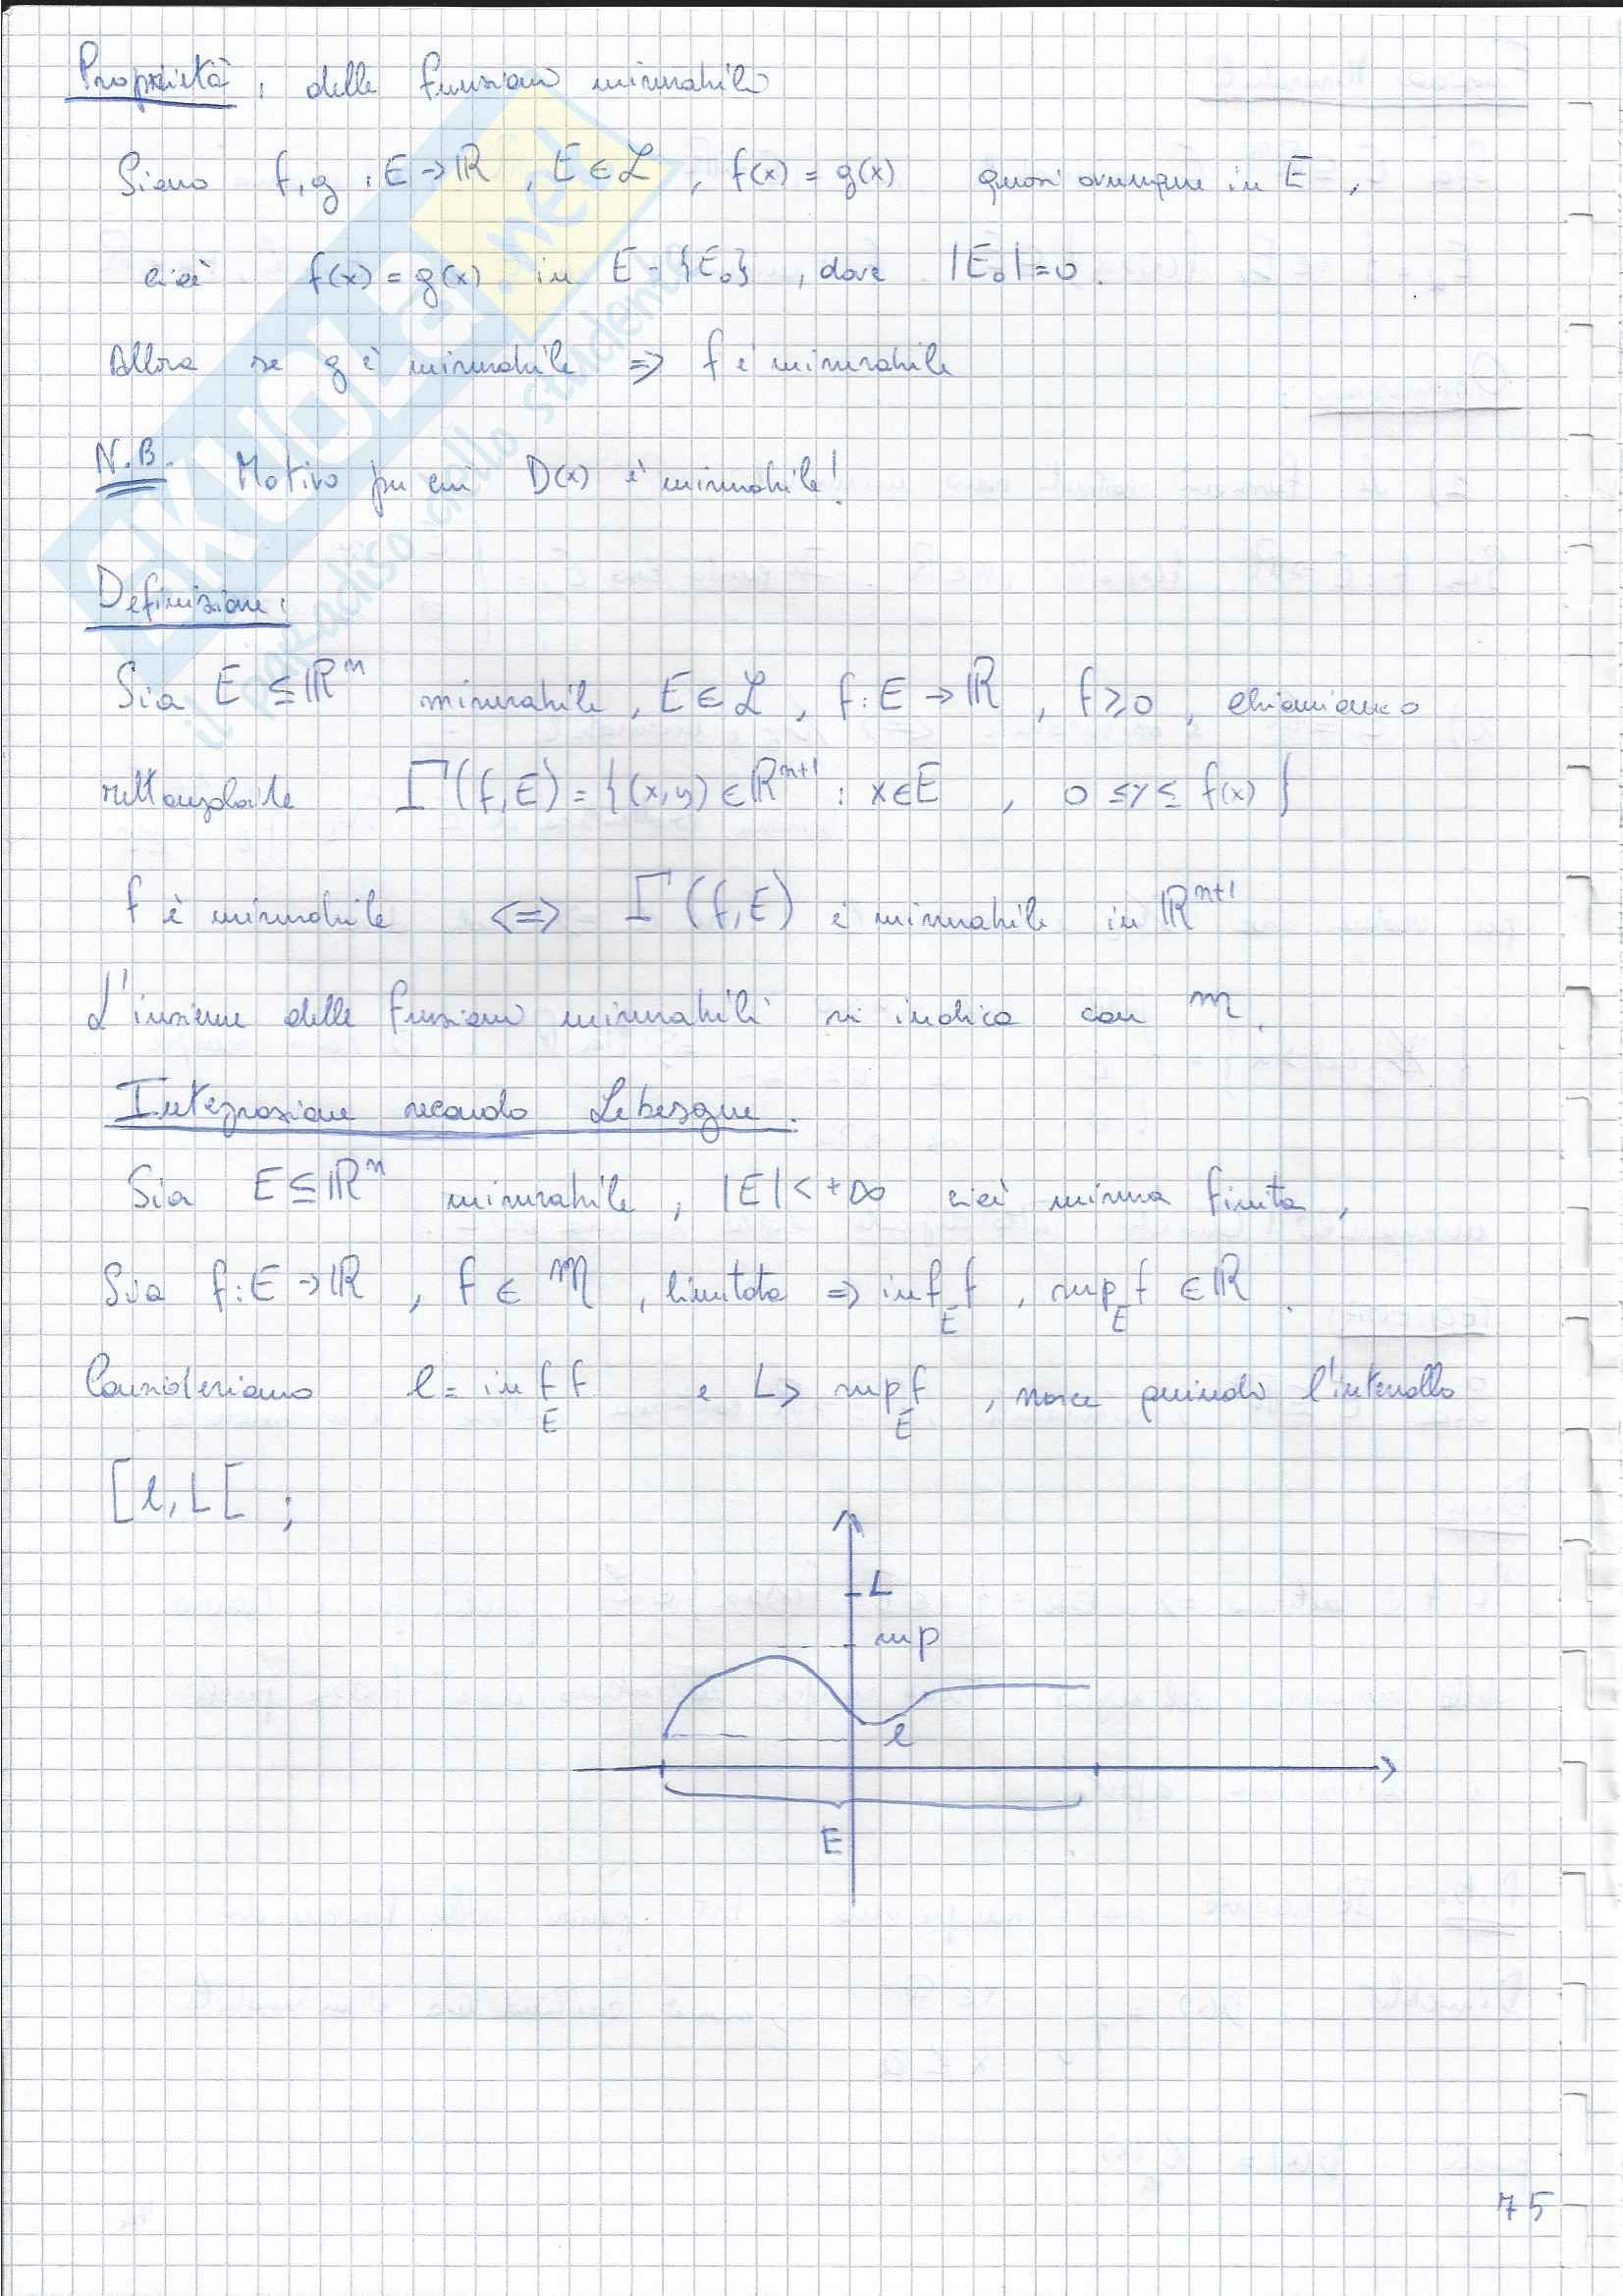 Proprietà : delle funzioni misurabili
Siano f,g : E → ℝ , E ∈ ℒ , f(x) = g(x) quasi ovunque in E ,
cioè f(x) = g(x) in E - {E₀} , dove |E₀| = 0 .
Allora se g è misurabile ⇒ f è misurabile
N.B. Motivo per cui D(x) è misurabile!
Definizione :
Sia E ⊆ ℝⁿ misurabile , E ∈ ℒ , f : E → ℝ , f ≥ 0 , chiamiamo
rettangoloide Γ(f,E) = {(x,y) ∈ ℝⁿ⁺¹ : x ∈ E , 0 ≤ y ≤ f(x)}
f è misurabile <=> Γ(f,E) è misurabile in ℝⁿ⁺¹
L'insieme delle funzioni misurabili si indica con m .
Integrazione secondo Lebesgue .
Sia E ⊆ ℝⁿ misurabile , |E| < +∞ cioè misura finita ,
Sia f : E → ℝ , f ∈ m , limitata ⇒ inf_E f , sup_E f ∈ ℝ .
Consideriamo l = inf_E f e L > sup_E f , nasce quindi l'intervallo
[l, L[ ;
L
sup
l
E
75
SKUOLA.net
il paradiso dello studente